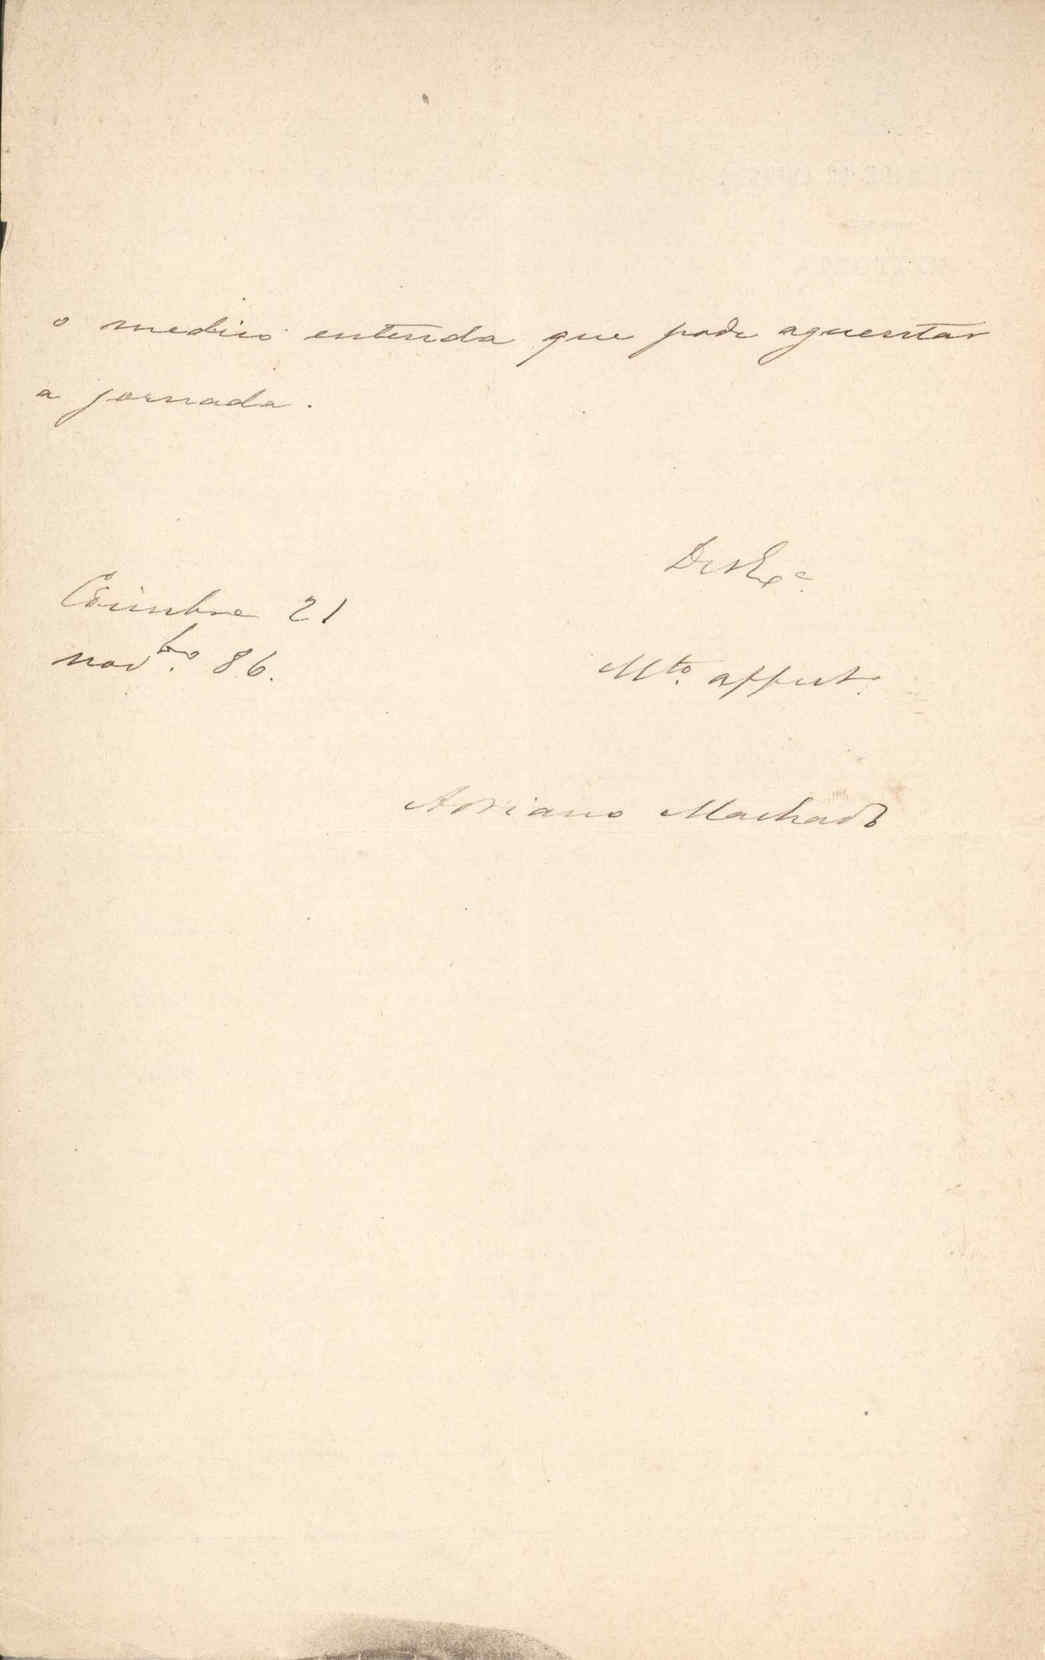 o medico entenda que pode aguentar
a jornada.
De V Ex.ª
Coimbra 21
nov.bro 86.
M.to affect.
Adriano Machado